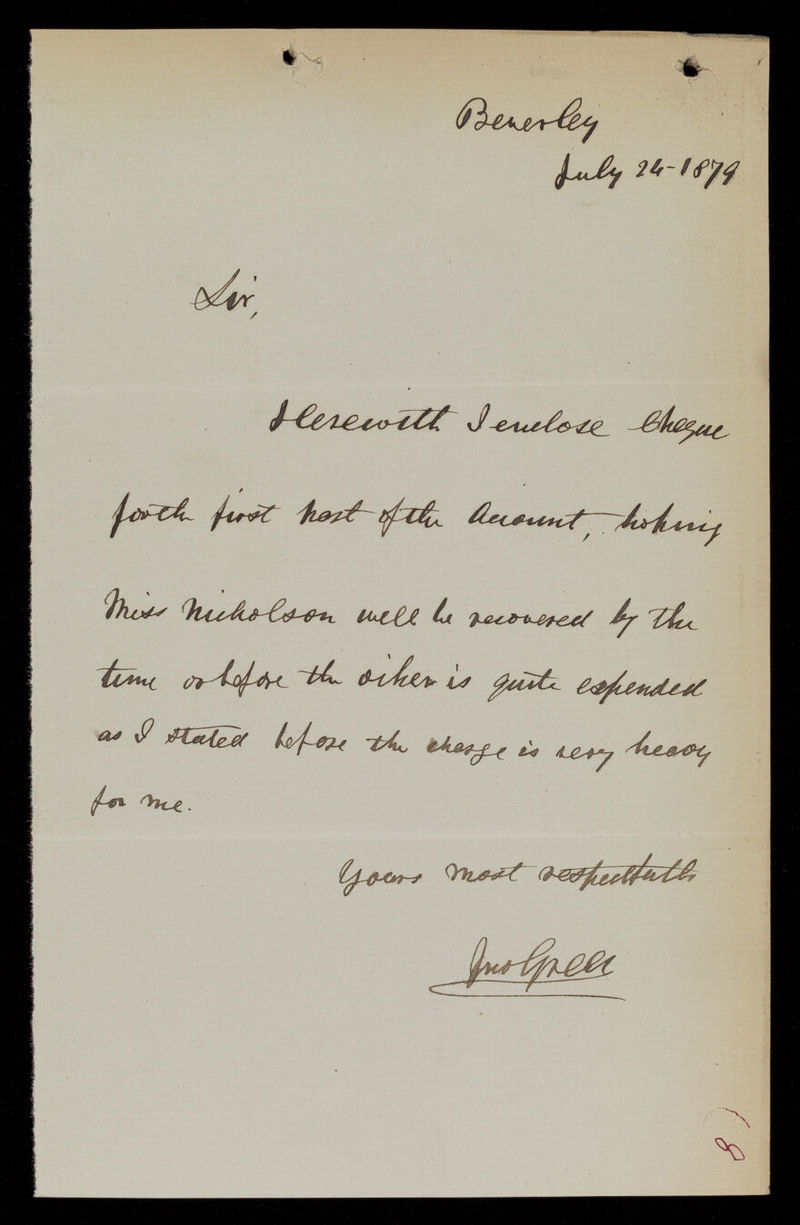 Beverley
July 24-1879
Sir,
Herewith I enclose Cheque
for the first part of the Account, hoping
Miss Nicholson will be recovered by the
time or before the other is quite expended
as I stated before the charge is very heavy
for me.
Yours most respectfully
Jno
8)